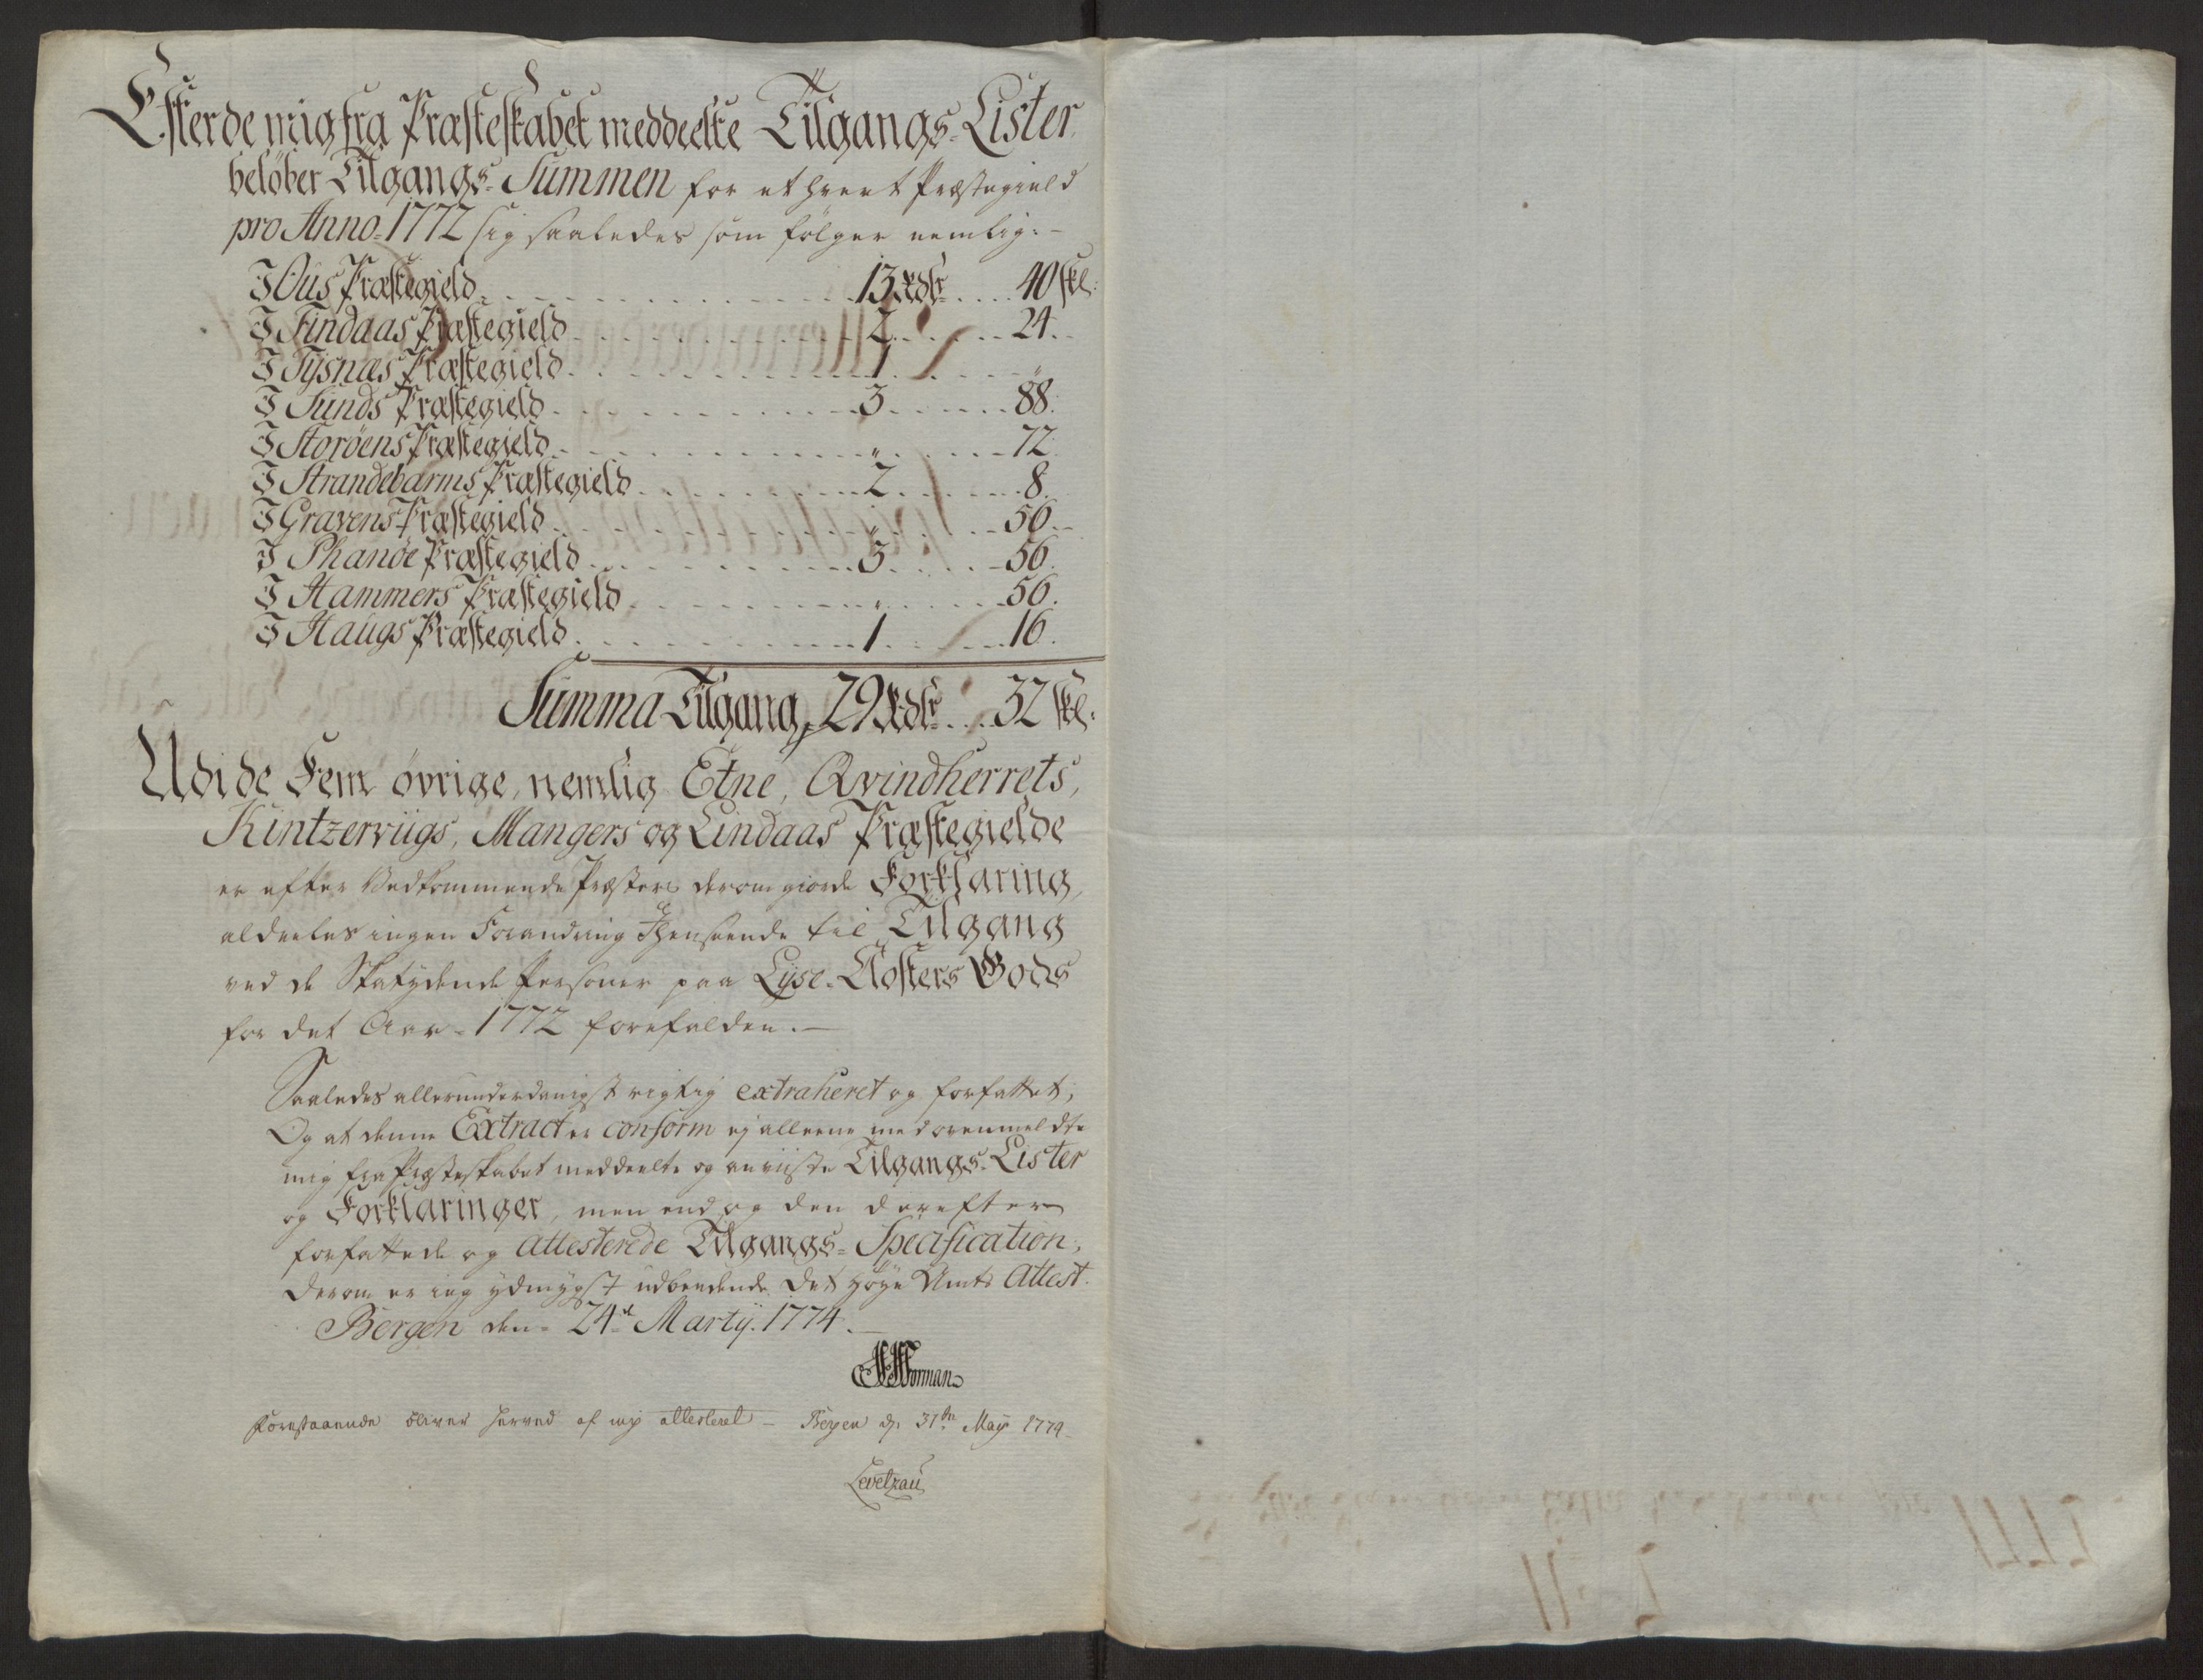 Efter de mig fra Præsteskabet meddeelte Tilgangs-Lister
belöber Tilgangs-Summen for ethvert Præstegield
pro Anno-1772 sig saaledes som fölger nemlig:-
I Ous Præstegield 13 Rdlr 40 skl:
I Findaas Præstegield 2 24.
I Tysnæs Præstegield 1 "
I Sunds Præstegield 3 88.
I Storöens Præstegield " 72.
I Strandebarms Præstegield 2 8.
I Gravens Præstegield " 56.
I Phanöe Præstegield 3 56.
I Hammers Præstegield " 56.
I Haugs Præstegield 1 16.
Summa Tilgang, 29 Rdlr 32 skl:
Udi de Fem övrige, nemlig Etne, Qvindherrets,
Kintzerviigs, Mangers og Lindaas Præstegielde
er efter Vedkommende Præsters derom giorde Forklaring,
aldeeles ingen Forandring Henseende til Tilgang
ved de Skatydende Personer paa Lyse-Closters Gods
for det Aar-1772 forefalden.-
Saaledes allerunderdanigst rigtig extraheret og forfattet,
Og at denne Extract er conform ej alleene med ovenmeldte
mig fra Præsteskabet meddeelte og anviiste Tilgangs-Lister
og Forklaringer, men endog den derefter
forfattede og attesterede Tilgangs-Specification,
derom er ieg ydmygst udbeedende det höye Amts Attest.
Bergen den-24de Martij. 1774.
Forestaaende bliver herved af mig attesteret - Bergen d. 31te May 1774
Levetzau